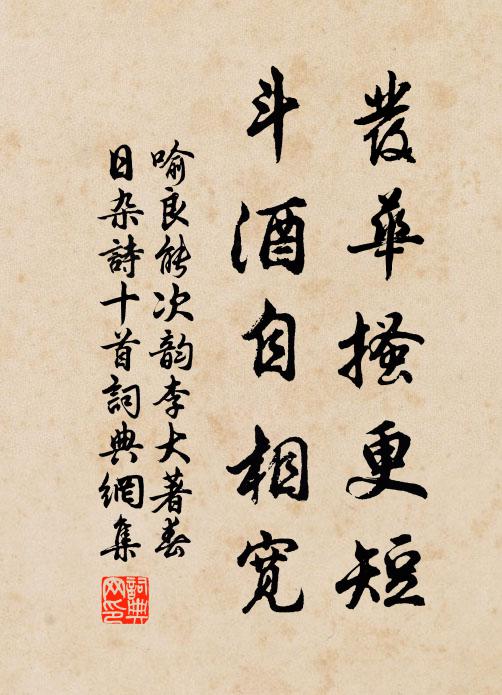 發華搔更短
斗酒自相寬
喻良能次韵李大著春
日杂詩十首詞典網集
詞典網印